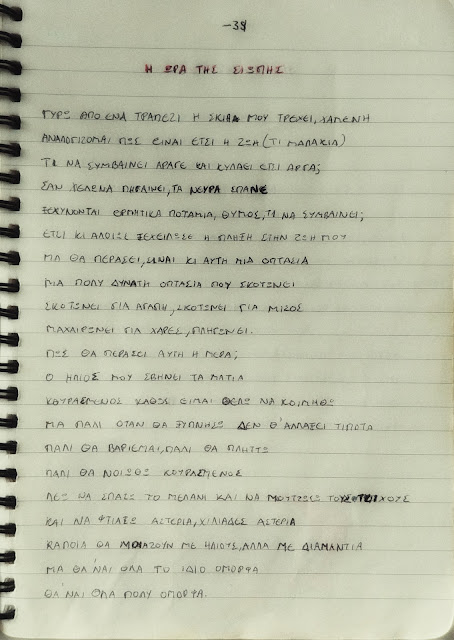 -39
Η ΩΡΑ ΤΗΣ ΣΙΩΠΗΣ
ΓΥΡΩ ΑΠΟ ΕΝΑ ΤΡΑΠΕΖΙ Η ΣΚΙΑ ΜΟΥ ΤΡΕΧΕΙ, ΧΑΜΕΝΗ
ΑΝΑΛΟΓΙΖΟΜΑΙ ΠΩΣ ΕΙΝΑΙ ΕΤΣΙ Η ΖΩΗ (ΤΙ ΜΑΛΑΚΙΑ)
ΤΙ ΝΑ ΣΥΜΒΑΙΝΕΙ ΑΡΑΓΕ ΚΑΙ ΚΥΛΑΕΙ ΕΤΣΙ ΑΡΓΑ;
ΣΑΝ ΒΕΛΟΝΑ ΠΗΓΑΙΝΕΙ, ΤΑ ΝΕΥΡΑ ΣΠΑΝΕ
ΞΕΧΥΝΟΝΤΑΙ ΕΡΩΤΙΚΑ ΠΟΤΑΜΙΑ, ΘΥΜΟΣ, ΤΙ ΝΑ ΣΥΜΒΑΙΝΕΙ;
ΕΤΣΙ ΚΙ ΑΛΛΙΩΣ ΞΕΧΕΙΛΩΣΕ Η ΠΛΗΞΗ ΣΤΗΝ ΖΩΗ ΜΟΥ
ΜΑ ΘΑ ΠΕΡΑΣΕΙ, ΕΙΝΑΙ ΚΙ ΑΥΤΗ ΜΙΑ ΟΠΤΑΣΙΑ
ΜΙΑ ΠΟΛΥ ΔΥΝΑΤΗ ΟΠΤΑΣΙΑ ΠΟΥ ΣΚΟΤΩΝΕΙ
ΣΚΟΤΩΝΕΙ ΓΙΑ ΑΓΑΠΗ, ΣΚΟΤΩΝΕΙ ΓΙΑ ΜΙΣΟΣ
ΜΑΧΑΙΡΩΝΕΙ ΓΙΑ ΧΑΡΕΣ, ΠΛΗΓΩΝΕΙ.
ΠΩΣ ΘΑ ΠΕΡΑΣΕΙ ΑΥΤΗ Η ΜΕΡΑ;
Ο ΗΛΙΟΣ ΜΟΥ ΣΒΗΝΕΙ ΤΑ ΜΑΤΙΑ
ΚΟΥΡΑΣΜΕΝΟΣ ΚΑΘΩΣ ΕΙΜΑΙ ΘΕΛΩ ΝΑ ΚΟΙΜΗΘΩ
ΜΑ ΠΑΛΙ ΟΤΑΝ ΘΑ ΞΥΠΝΗΣΩ ΔΕΝ Θ'ΑΛΛΑΞΕΙ ΤΙΠΟΤΑ
ΠΑΛΙ ΘΑ ΒΑΡΙΕΜΑΙ, ΠΑΛΙ ΘΑ ΠΛΗΤΤΩ
ΠΑΛΙ ΘΑ ΝΟΙΩΘΩ ΚΟΥΡΑΣΜΕΝΟΣ
ΛΕΩ ΝΑ ΣΠΑΣΩ ΤΟ ΜΕΛΑΝΙ ΚΑΙ ΝΑ ΜΟΥΤΖΩΣΩ ΤΟΥΣ ΤΟΙΧΟΥΣ
ΚΑΙ ΝΑ ΦΤΙΑΞΩ ΑΣΤΕΡΙΑ, ΧΙΛΙΑΔΕΣ ΑΣΤΕΡΙΑ
ΚΑΠΟΙΑ ΘΑ ΜΟΙΑΖΟΥΝ ΜΕ ΗΛΙΟΥΣ, ΑΛΛΑ ΜΕ ΔΙΑΜΑΝΤΙΑ
ΜΑ ΘΑ'ΝΑΙ ΟΛΑ ΤΟ ΙΔΙΟ ΟΜΟΡΦΑ
ΘΑ'ΝΑΙ ΟΛΑ ΠΟΛΥ ΟΜΟΡΦΑ.